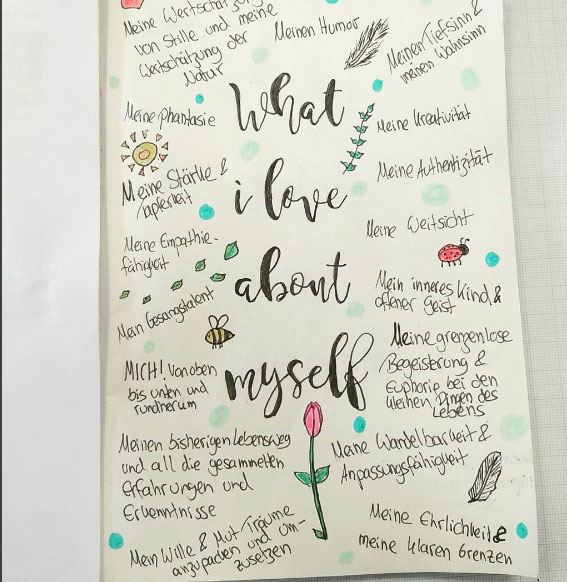 Meine Wertschätzung
von Stille und meine
Wertschätzung der
Natur
Meinen Humor
Meinen Tiefsinn &
meinen Wahnsinn
What
i love
about
myself
Meine Phantasie
Meine Kreativität
Meine Stärke &
Tapferkeit
Meine Authentizität
Meine Weitsicht
Meine Empathie-
fähigkeit
Mein inneres Kind &
offener Geist
Mein Gesangstalent
Meine grenzenlose
Begeisterung &
Euphorie bei den
kleinen Dingen des
Lebens
MICH! Von oben
bis unten und
rundherum
Meinen bisherigen Lebensweg
und all die gesammelten
Erfahrungen und
Erkenntnisse
Meine Wandelbarkeit &
Anpassungsfähigkeit
Mein Wille & Mut Träume
anzupacken und um-
zusetzen
Meine Ehrlichkeit &
meine klaren Grenzen